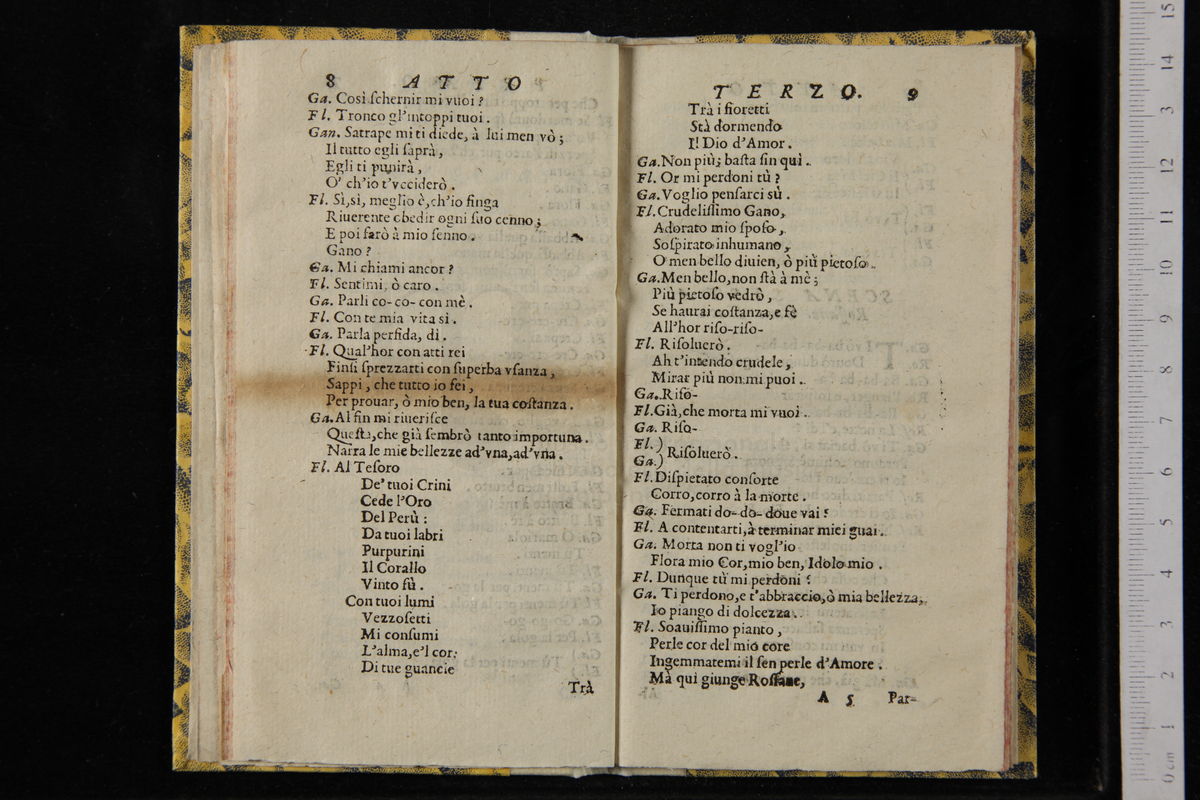 8 ATTO
Ga. Così ſchernir mi vuoi ?
Fl. Tronco gl'intoppi tuoi .
Gan. Satrape mi ti diede, à lui men vò ;
Il tutto egli ſaprà ,
Egli ti punirà ,
O' ch'io t'vcciderò .
Fl. Sì, sì, meglio è, ch'io finga
Riuerente obedir ogni ſuo cenno ;
E poi farò à mio ſenno .
Gano ?
Ga. Mi chiami ancor ?
Fl. Sentimi, ò caro .
Ga. Parli co- co- con mè .
Fl. Con te mia vita sì .
Ga. Parla perfida, dì .
Fl. Qual'hor con atti rei
Finſi ſprezzarti con ſuperba vſanza ,
Sappi , che tutto io fei ,
Per prouar, ò mio ben, la tua coſtanza .
Ga. Al fin mi riueriſce
Queſta, che già ſembrò tanto importuna .
Narra le mie bellezze ad'vna, ad'vna .
Fl. Al Teſoro
De' tuoi Crini
Cede l'Oro
Del Perù :
Da tuoi labri
Purpurini
Il Corallo
Vinto fù .
Con tuoi lumi
Vezzoſetti
Mi conſumi
L'alma, e'l cor:
Di tue guancie
Trà
TERZO. 9
Trà i fioretti
Stà dormendo
Il Dio d'Amor .
Ga. Non più; baſta ſin quì .
Fl. Or mi perdoni tù ?
Ga. Voglio penſarci sù .
Fl. Crudeliſſimo Gano ,
Adorato mio ſpoſo ,
Soſpirato inhumano ,
O men bello diuien, ò più pietoſo .
Ga. Men bello, non ſtà à mè ;
Più pietoſo vedrò ,
Se haurai coſtanza, e fè
All'hor riſo-riſo-
Fl. Riſoluerò .
Ah t'intendo crudele ,
Mirar più non mi puoi .
Ga. Riſo-
Fl. Già, che morta mi vuoi .
Ga. Riſo-
Fl. )
Ga. ) Riſoluerò .
Fl. Diſpietato conſorte
Corro, corro à la morte .
Ga. Fermati do- do- doue vai ?
Fl. A contentarti, à terminar miei guai .
Ga. Morta non ti vogl'io
Flora mio Cor, mio ben, Idolo mio .
Fl. Dunque tù mi perdoni ?
Ga. Ti perdono, e t'abbraccio, ò mia bellezza ,
Io piango di dolcezza .
Fl. Soauiſſimo pianto ,
Perle cor del mio core
Ingemmatemi il ſen perle d'Amore .
Mà quì giunge Roſſane,
A 5 Par-